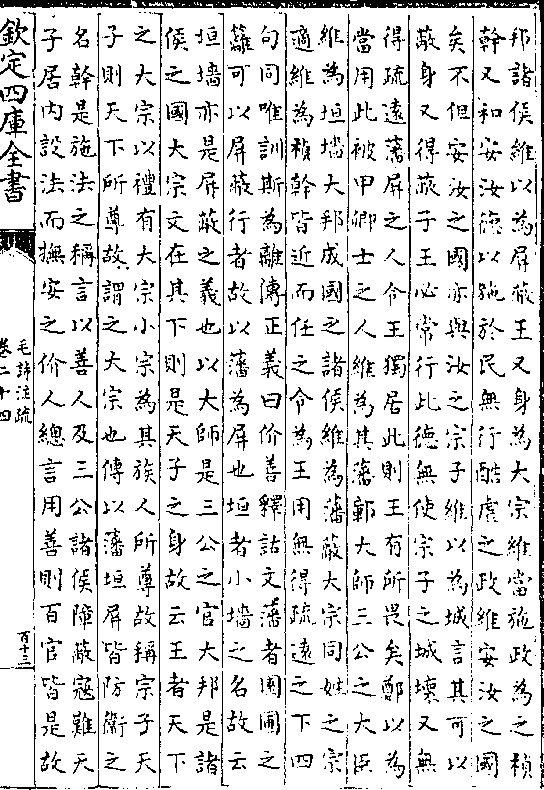 邦諸侯維以為屏蔽王又身為大宗維當施政為之楨
幹又和安汝德以施於民無行酷虐之政維安汝之國
矣不但安汝之國亦與汝之宗子維以為城言其可以
蔽身又得蔽子王必常行此德無使宗子之城壞又無
得疏遠藩屏之人令王獨居此則王有所畏矣鄭以為
當用此被甲卿士之人維為其藩鄣大師三公之大臣
維為垣墻大邦成國之諸侯維為藩蔽大宗同姓之宗
適維為楨幹皆近而任之令為王用無得疏遠之下四
句同唯訓斯為離傳正義曰价善釋詁文藩者園圃之
籬可以屏蔽行者故以藩為屏也垣者小墻之名故云
垣墻亦是屏蔽之義也以大師是三公之官大邦是諸
侯之國大宗文在其下則是天子之身故云王者天下
之大宗以禮有大宗小宗為其族人所尊故稱宗子天
子則天下所尊故謂之大宗也傳以藩垣屏皆防衛之
名幹是施法之稱言以善人及三公諸侯障蔽寇難天
子居內設法而撫安之价人總言用善則百官皆是故
欽定四庫全書
毛詩注疏
卷二十四
百十三